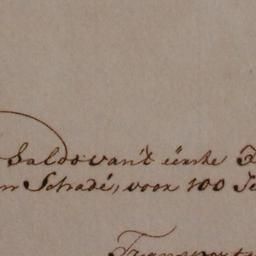 Saldo van't eerste
Schade, voor 100
Transport